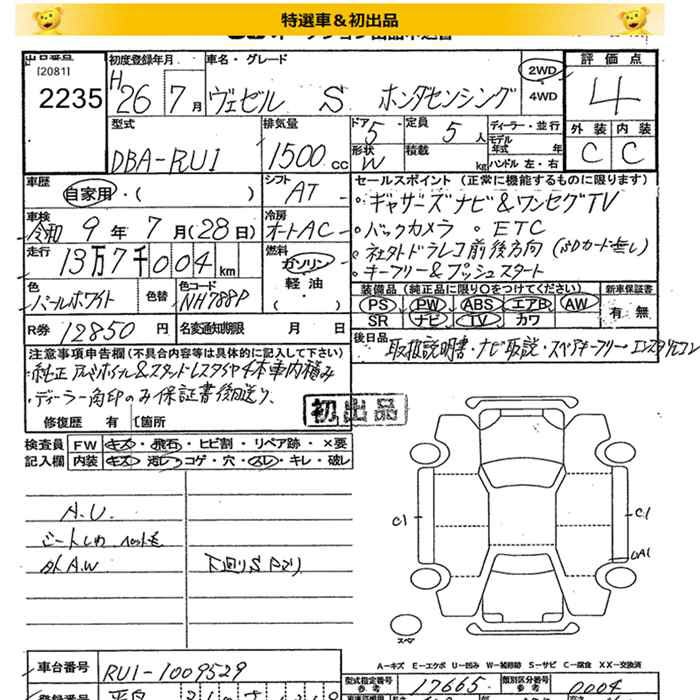 特選車&初出品
[2081]
2235
初度登録年月
H26 7月
車名・グレード
ヴェゼル S ホンダセンシング
2WD
・4WD
評価点
4
外装 内装
C C
型式
DBA-RU1
排気量
1500cc
ドア 5 定員 5人
形状 W 積載 kg
ディーラー・並行
モデル年式 年
ハンドル 左・右
車歴
自家用・( )
シフト
AT
車検
令和 9年 7月(28日)
冷房
オートAC
走行
13万7千004km
燃料
ガソリン
軽油
・( )
色
パールホワイト
色替
色コード
NH788P
R券 12850円
名変通知期限 月 日
セールスポイント(正常に機能するものに限ります)
・ギャザーズナビ&ワンセグTV
・バックカメラ ・ETC
・社外ドラレコ前後方向(SDカード無し)
・キーフリー&プッシュスタート
装備品(純正品に限り○をつけてください) 新車保証書
PS PW ABS エアB AW
SR ナビ TV カワ
有 無
後日品
取扱説明書・ナビ取説・スペアキーフリー・エンスタリモコン
注意事項申告欄(不具合内容等は具体的に記入して下さい)
・純正アルミホイール&スタッドレスタイヤ4本車内積み
・ディーラー角印のみ保証書後日送り。
修復歴 有 〔箇所
初出品
検査員 FW キズ・飛石・ヒビ割・リペア跡・×要
記入欄 内装 キズ・汚れ・コゲ・穴・スレ・キレ・破レ
A.U
シートしわ
外A.W
下回りS
C1
C1
UA1
スペア
A-キズ E-エクボ U-凹み W-補修跡 S-サビ C-腐食 XX-交換済
車台番号 RU1-1009529
型式指定番号
参考
17665
類別区分番号
参考
0004